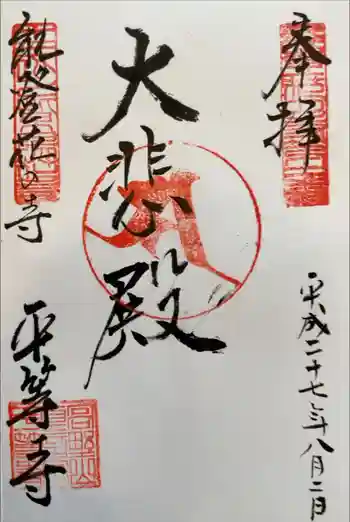 奉拝
平成二十七年八月二日
大悲殿
能登花の寺
平等寺